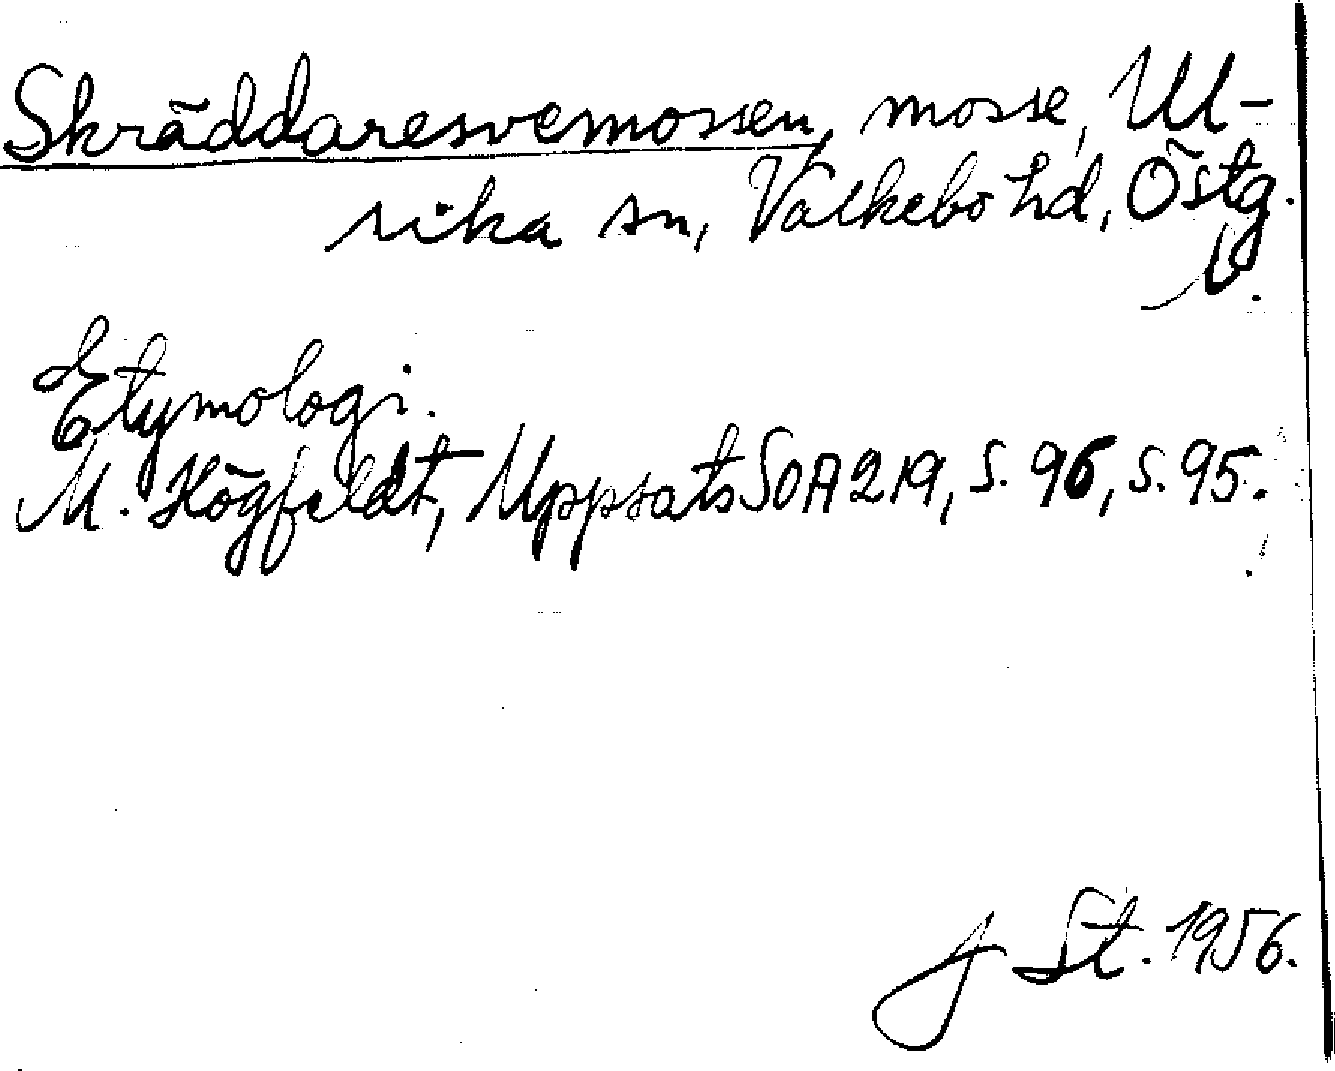 Skräddaresvemossen, mosse, Ul-
rika sn, Valkebo hd, Östg.
Etymologi.
M. Högfeldt, Uppsats SOA 219, s. 96, s. 95.
J St. 1956.